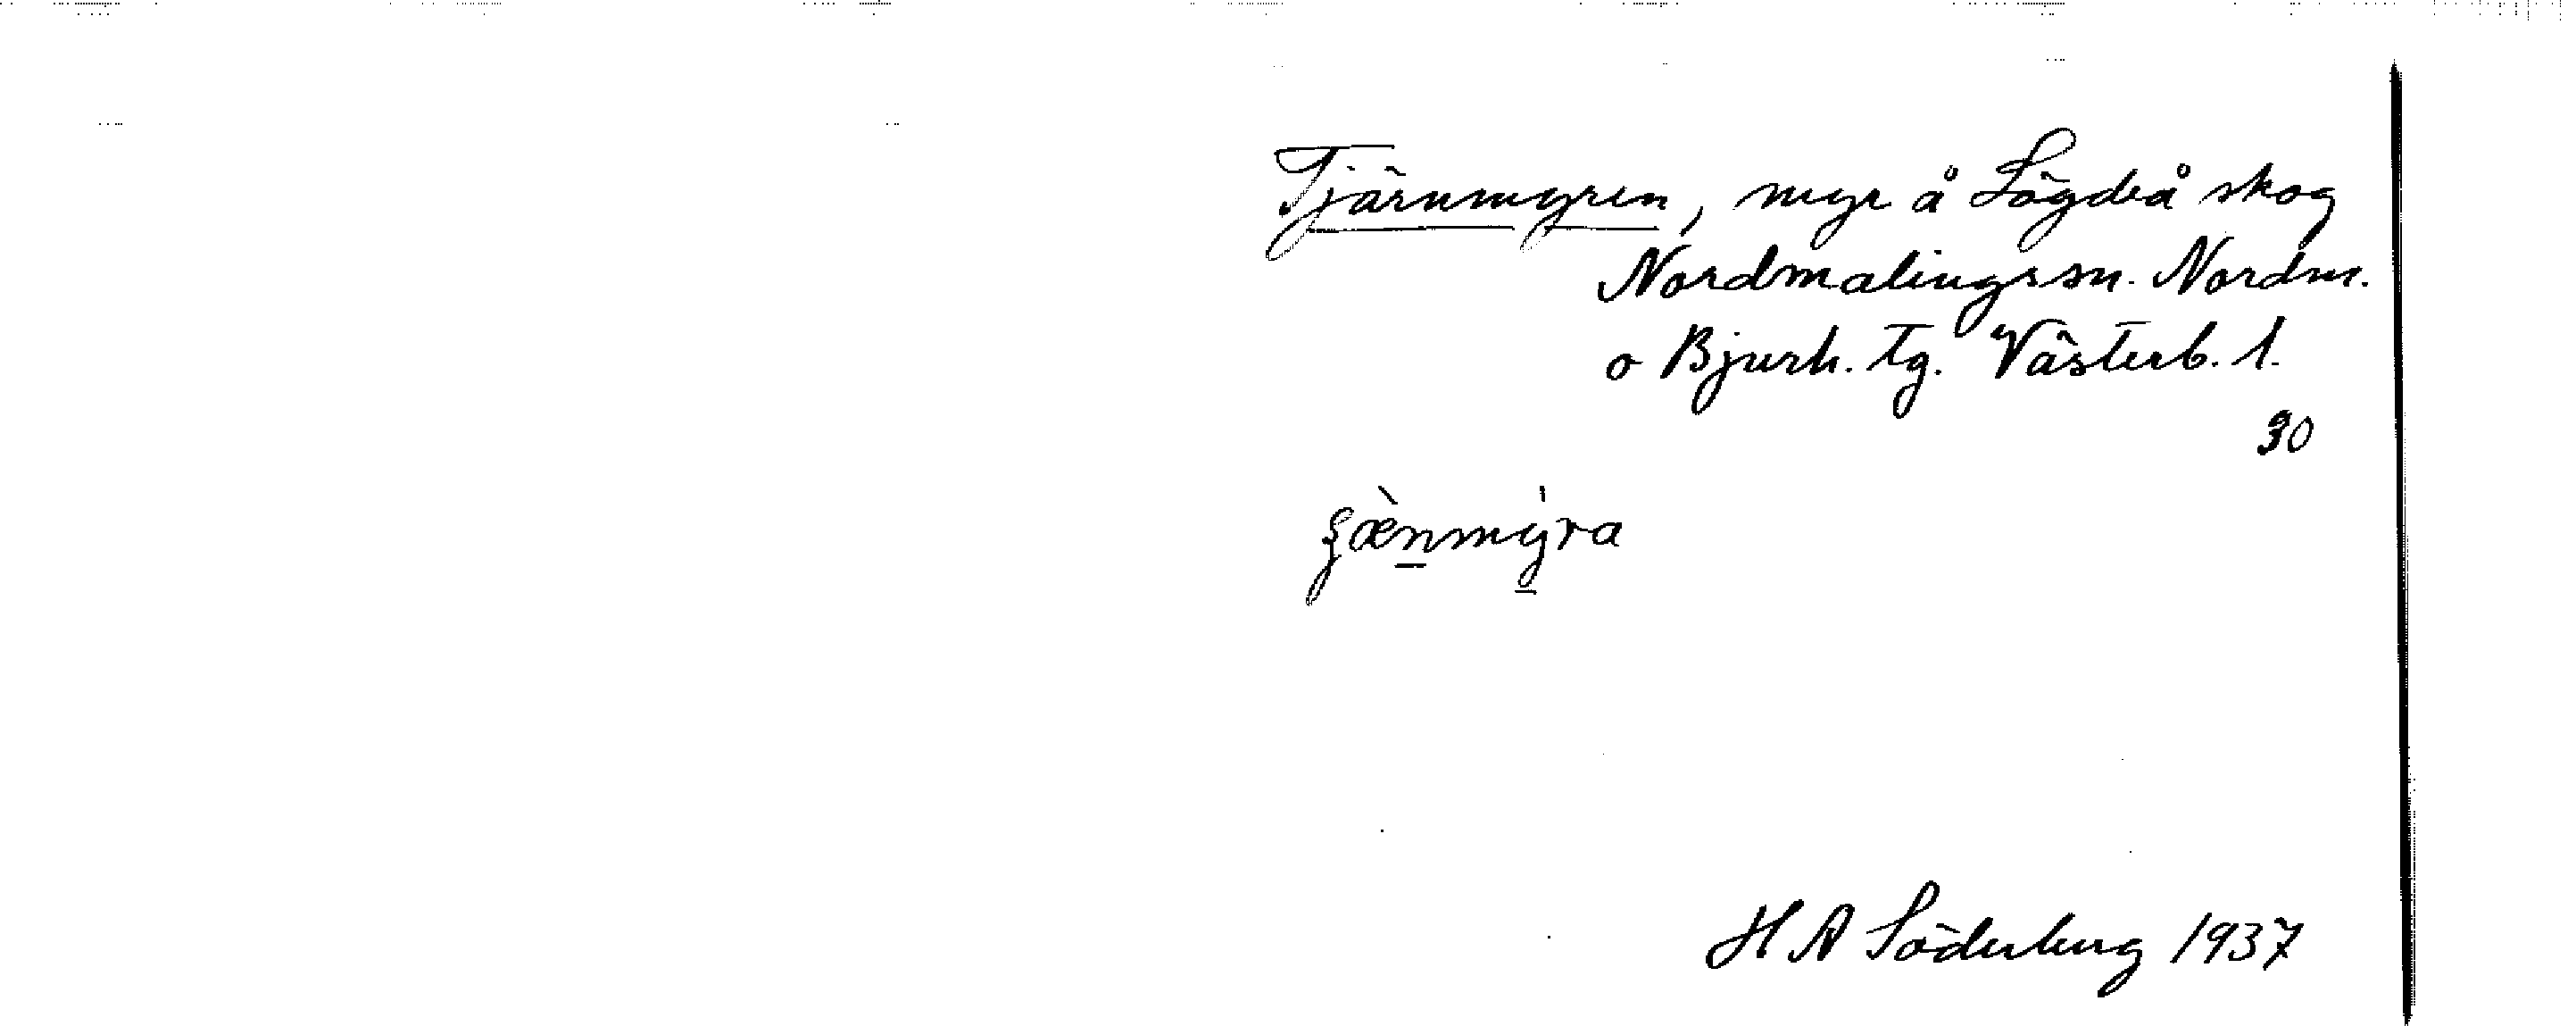 Tjärnmyren, myr å Lögdeå skog
Nordmalingssn. Nordm.
o Bjurh. tg. Västerb. l.
30
H A Söderberg 1937